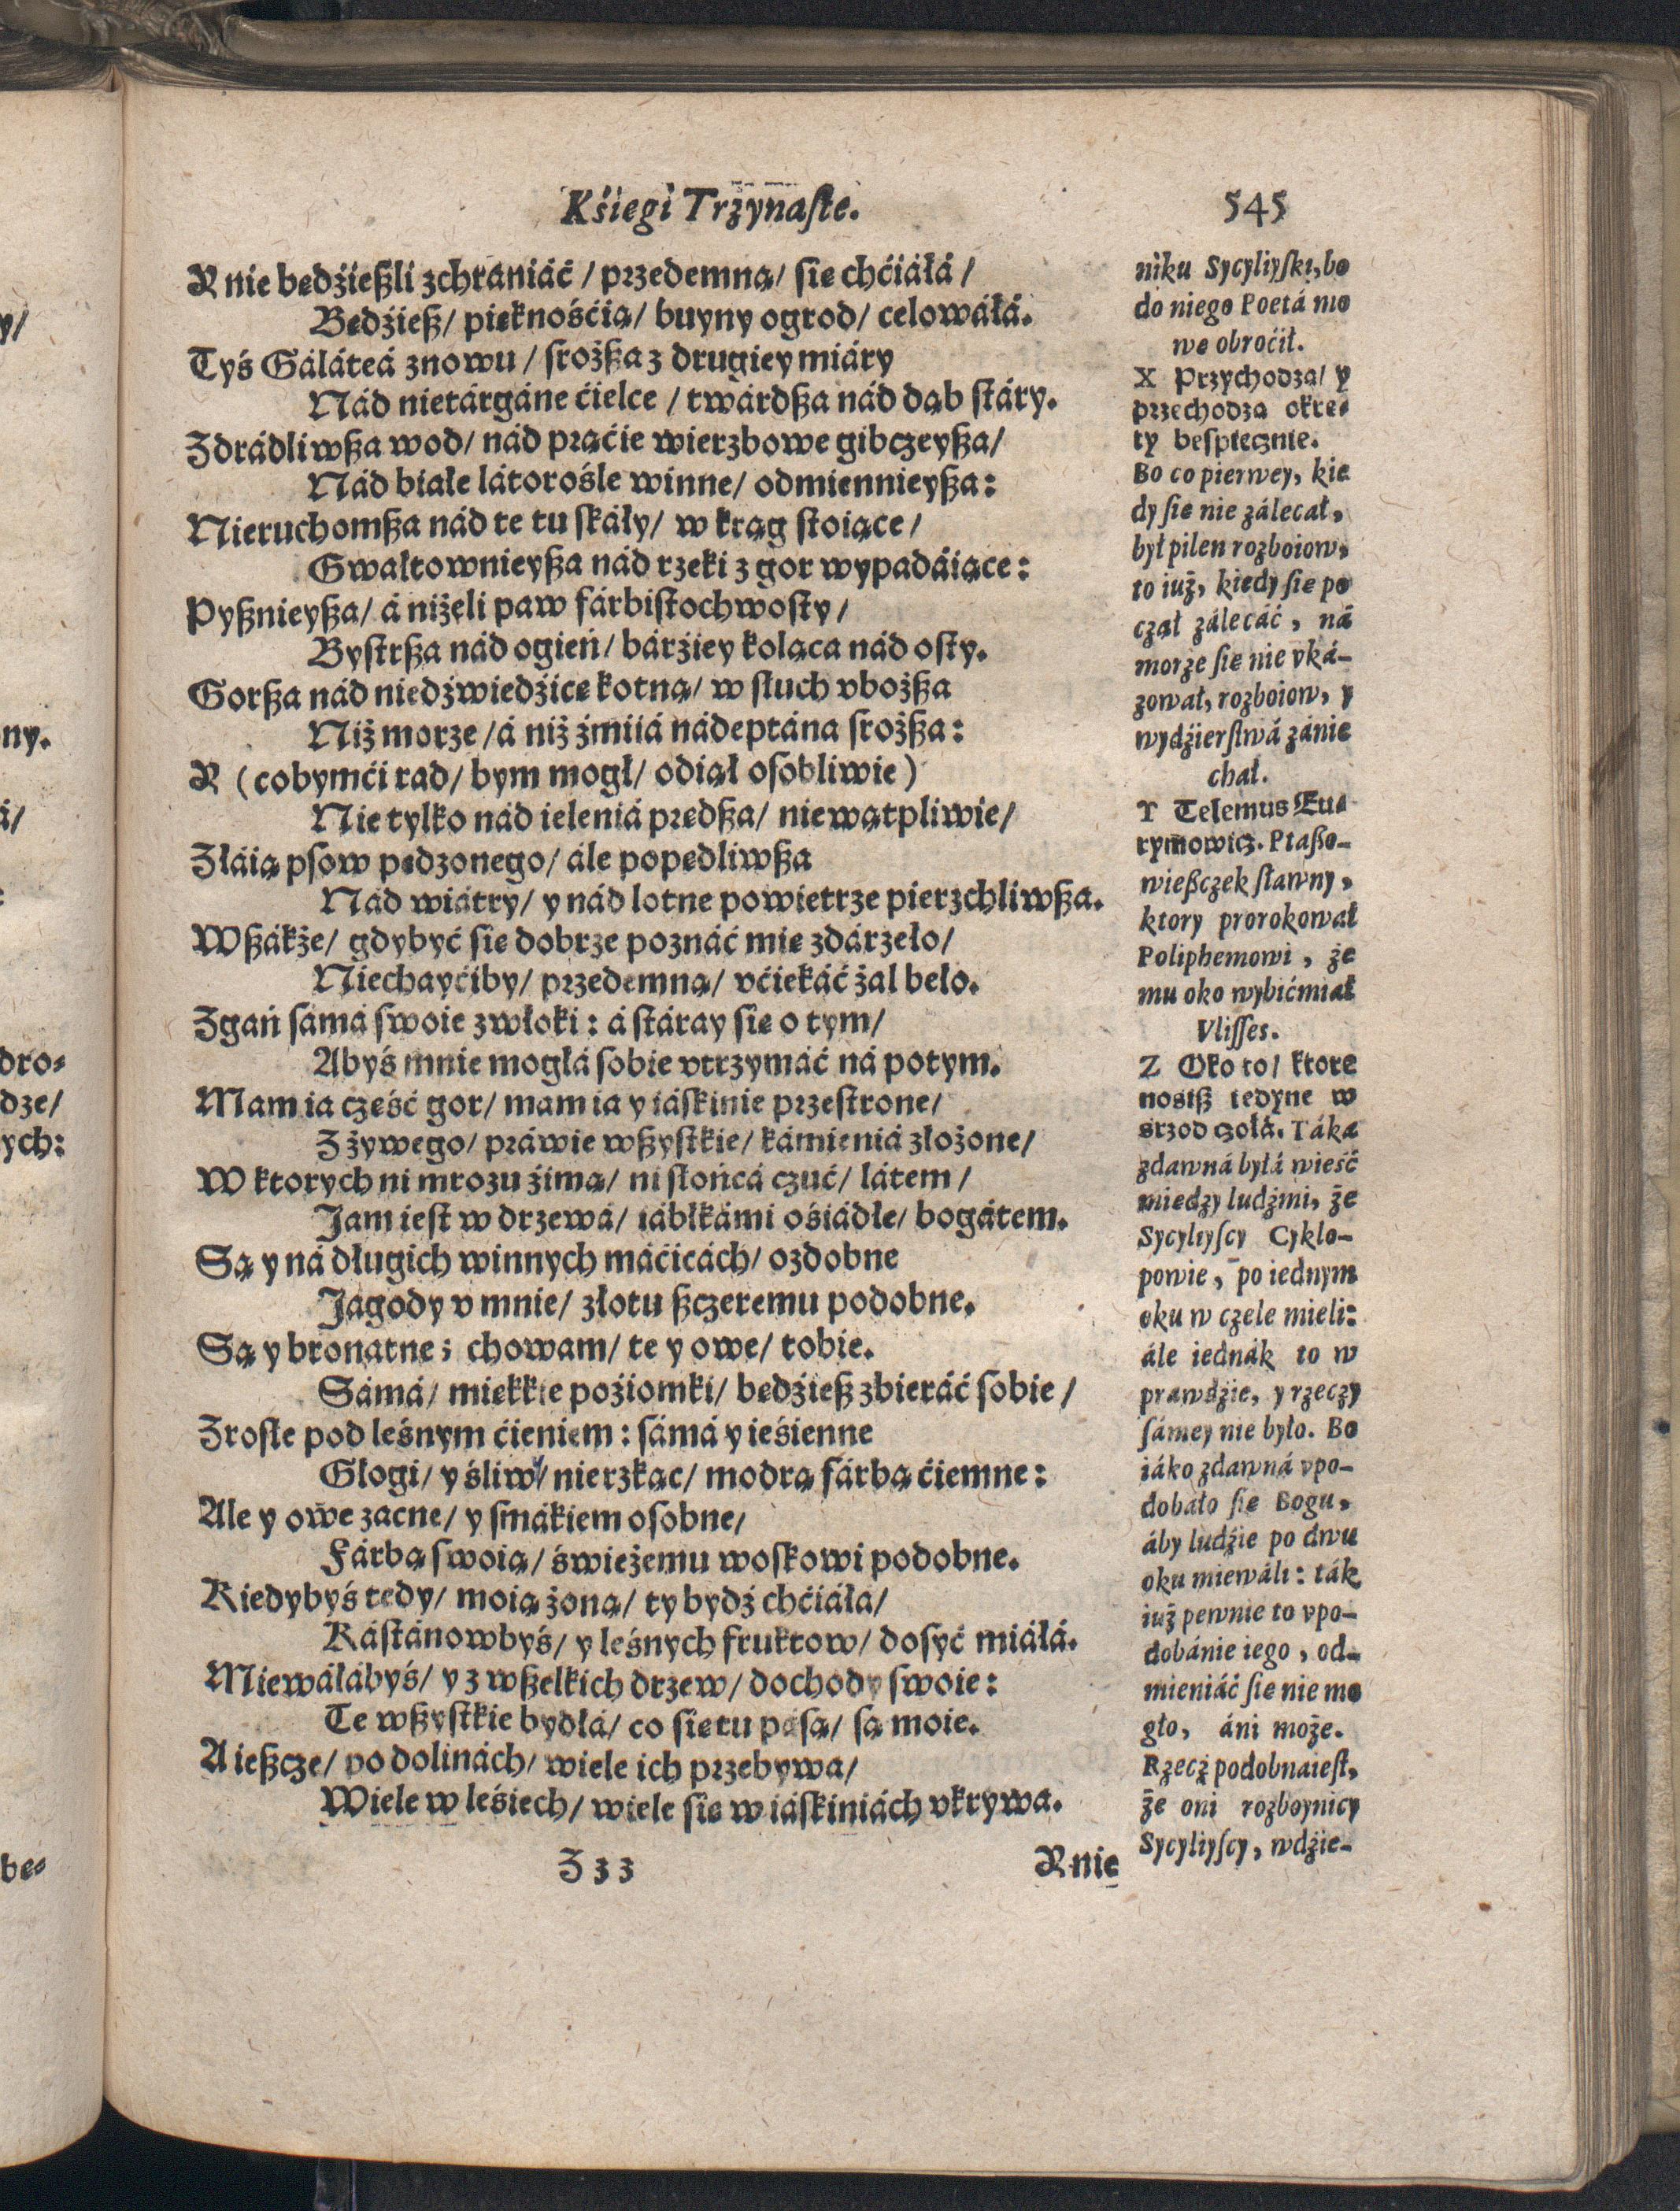 Kśięgi Trzynaste.
545
R nie będźießli zchrániáć / przedemną / się chćiáłá /
Będźieß / pięknośćią / buyny ogrod / celowáłá.
Tyś Gáláteá znowu / srożßa z drugiey miáry
Nád nietárgáne ćielce / twárdßa nád dąb stáry.
Zdrádliwßa wod / nád pręćie wierzbowe gibczeyßa /
Nád białe látorośle winne / odmiennieyßa:
Nieruchomßa nád te tu skáły / w krąg stoiące /
Gwałtownieyßa nád rzeki z gor wypadáiące:
Pyßnieyßa / á niżeli paw fárbistochwosty /
Bystrßa nád ogień / bárźiey koląca nád osty.
Gorßa nád niedźwiedźicę kotną / w słuch vboższa
Niż morze / á niż żmiiá nádeptána srożßa:
R (cobymći rad / bym mogł / odiął osobliwie)
Nie tylko nád ieleniá prędßa / niewątpliwie /
Złáią psow pędzonego / ále popędliwßa
Nád wiátry / y nád lotne powietrze pierzchliwßa.
Wßákże / gdybyć się dobrze poznáć mię zdárzeło /
Niechayćiby / przedemną / vćiekáć żal beło.
Zgań sámá swoie zwłoki: á stáray się o tym /
Abyś mnie mogłá sobie vtrzymáć ná potym.
Mam ia część gor / mam ia y iáskinie przestrone /
Z żywego / práwie wßystkie / kámieniá złożone /
W ktorych ni mrozu źimą / ni słońcá czuć / látem /
Jam iest w drzewá / iábłkámi ośiádłe / bogátem.
Są y ná długich winnych máćicách / ozdobne
Jagody v mnie / złotu ßczeremu podobne.
Są y bronatne; chowam / te y owe / tobie.
Sámá / miękkie poźiomki / będźieß zbieráć sobie /
Zrosłe pod leśnym ćieniem: sámá y ieśienne
Głogi / y śliwy / nierzkąc / modrą fárbą ćiemne:
Ale y owe zacne / y smákiem osobne /
Fárbą swoią / świeżemu woskowi podobne.
Kiedybyś tedy / moią żoną / ty bydź chćiáła /
Kásztánowbyś / y leśnych fruktow / dosyć miáłá.
Miewáłábyś / y z wßelkich drzew / dochody swoie:
Te wßystkie bydłá / co się tu pásą / są moie.
A ießcze / po dolinách / wiele ich przebywa /
Wiele w leśiech / wiele się w iáskiniách vkrywa.
Zzz
R nie
niku Sycyliyski, bo
do niego Poetá mo
wę obroćił.
X Przychodzą / y
przechodzą okrę-
ty bespiecznie.
Bo co pierwey, kie
dy się nie zálecał,
był pilen rozboiow,
to iuż, kiedy się po
czął zálecáć, ná
morze się nie vká-
zował, rozboiow, y
wydźierstwá zánie
chał.
Y Telemus Eu-
rymowicz. Ptaßo-
wießczek sławny,
ktory prorokował
Poliphemowi, że
mu oko wybić miał
Vlisses.
Z Oko to / ktore
nosiß iedyne w
srzod czołá. Táka
zdawná byłá wieść
miedzy ludźmi, że
Sycyliyscy Cyklo-
powie, po iednym
oku w czele mieli:
ále iednák to w
prawdźie, y rzeczy
sámey nie było. Bo
iáko zdawná vpo-
dobáło się Bogu,
áby ludźie po dwu
oku miewáli: ták
iuż pewnie to vpo-
dobánie iego, od-
mieniáć się nie mo
gło, áni może.
Rzecz podobna iest,
że oni rozboynicy
Sycyliyscy, wdźie-